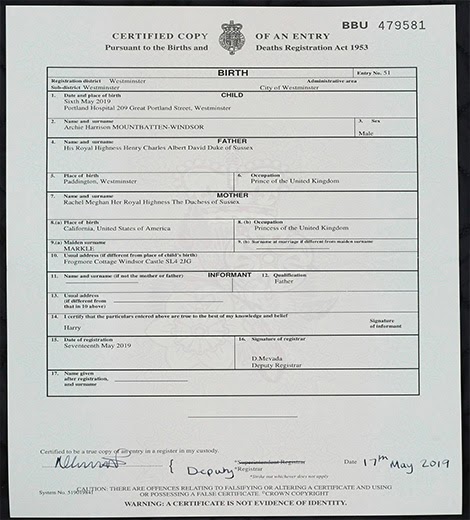 BBU 479581
CERTIFIED COPY OF AN ENTRY
Pursuant to the Births and Deaths Registration Act 1953
BIRTH Entry No. 51
Registration district Westminster Administrative area
Sub-district Westminster City of Westminster
1. Date and place of birth CHILD
Sixth May 2019
Portland Hospital 209 Great Portland Street, Westminster
2. Name and surname 3. Sex
Archie Harrison MOUNTBATTEN-WINDSOR Male
4. Name and surname FATHER
His Royal Highness Henry Charles Albert David Duke of Sussex
5. Place of birth 6. Occupation
Paddington, Westminster Prince of the United Kingdom
7. Name and surname MOTHER
Rachel Meghan Her Royal Highness The Duchess of Sussex
8.(a) Place of birth 8.(b) Occupation
California, United States of America Princess of the United Kingdom
9.(a) Maiden surname 9.(b) Surname at marriage if different from maiden surname
MARKLE
10. Usual address (if different from place of child's birth)
Frogmore Cottage Windsor Castle SL4 2JG
11. Name and surname (if not the mother or father) INFORMANT 12. Qualification
Father
13. Usual address
(if different from
that in 10 above)
14. I certify that the particulars entered above are true to the best of my knowledge and belief
Harry Signature
of informant
15. Date of registration 16. Signature of registrar
Seventeenth May 2019
D.Mevada
Deputy Registrar
17. Name given
after registration,
and surname
Certified to be a true copy of an entry in a register in my custody.
*Superintendent Registrar
Deputy *Registrar Date 17th May 2019
*Strike out whichever does not apply
CAUTION: THERE ARE OFFENCES RELATING TO FALSIFYING OR ALTERING A CERTIFICATE AND USING
System No. OR POSSESSING A FALSE CERTIFICATE. ©CROWN COPYRIGHT
WARNING: A CERTIFICATE IS NOT EVIDENCE OF IDENTITY.